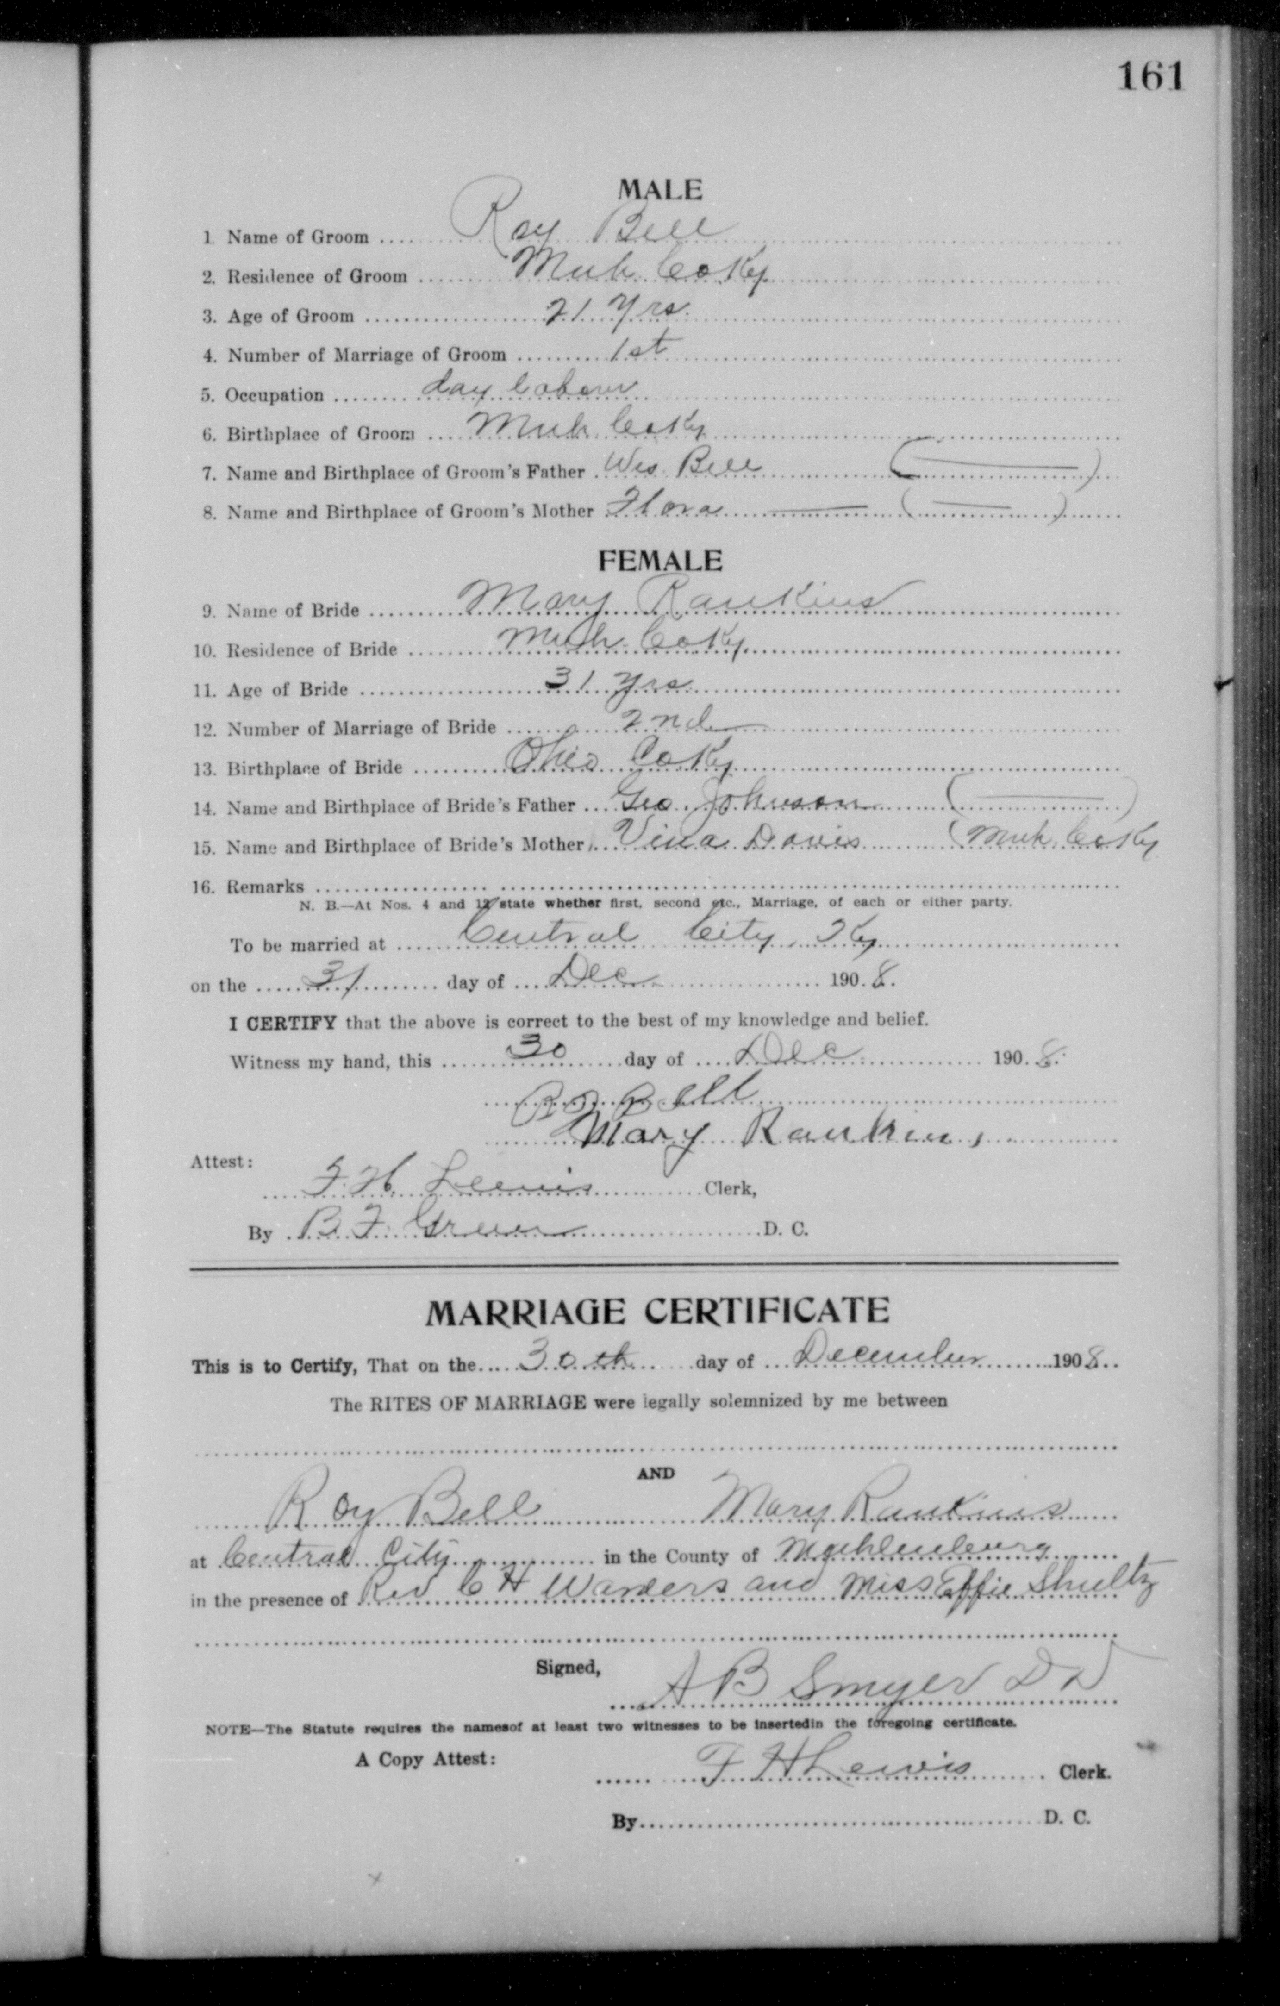 161
MALE
1 Name of Groom Roy Bell
2. Residence of Groom Muh. Co Ky.
3. Age of Groom 21 Yrs.
4. Number of Marriage of Groom 1st
5. Occupation day labour
6. Birthplace of Groom Muh. Co Ky
7. Name and Birthplace of Groom's Father Wes Bell ( )
8. Name and Birthplace of Groom's Mother Flora ( )
FEMALE
9. Name of Bride Mary Rankins
10. Residence of Bride Muh. Co Ky.
11. Age of Bride 31 yrs
12. Number of Marriage of Bride 2nd
13. Birthplace of Bride Ohio Co Ky
14. Name and Birthplace of Bride's Father Geo. Johnson ( )
15. Name and Birthplace of Bride's Mother Vina Davis (Muh. Co Ky
16. Remarks
N. B.—At Nos. 4 and 12 state whether first, second etc., Marriage, of each or either party.
To be married at Central City, Ky
on the 31 day of Dec 1908.
I CERTIFY that the above is correct to the best of my knowledge and belief.
Witness my hand, this 30 day of Dec 1908.
Bell
Mary Rankins
Attest:
F. H. Lewis Clerk,
By B. F. Green D. C.
MARRIAGE CERTIFICATE
This is to Certify, That on the 30th day of December 1908
The RITES OF MARRIAGE were legally solemnized by me between
AND
Roy Bell Mary Rankins
at Central City in the County of Muhlenburg
in the presence of Rev C H Wanders and Miss Effie Shultz
Signed,
A B Smyer
NOTE—The Statute requires the namesof at least two witnesses to be insertedin the foregoing certificate.
A Copy Attest:
F H Lewis Clerk.
By D. C.